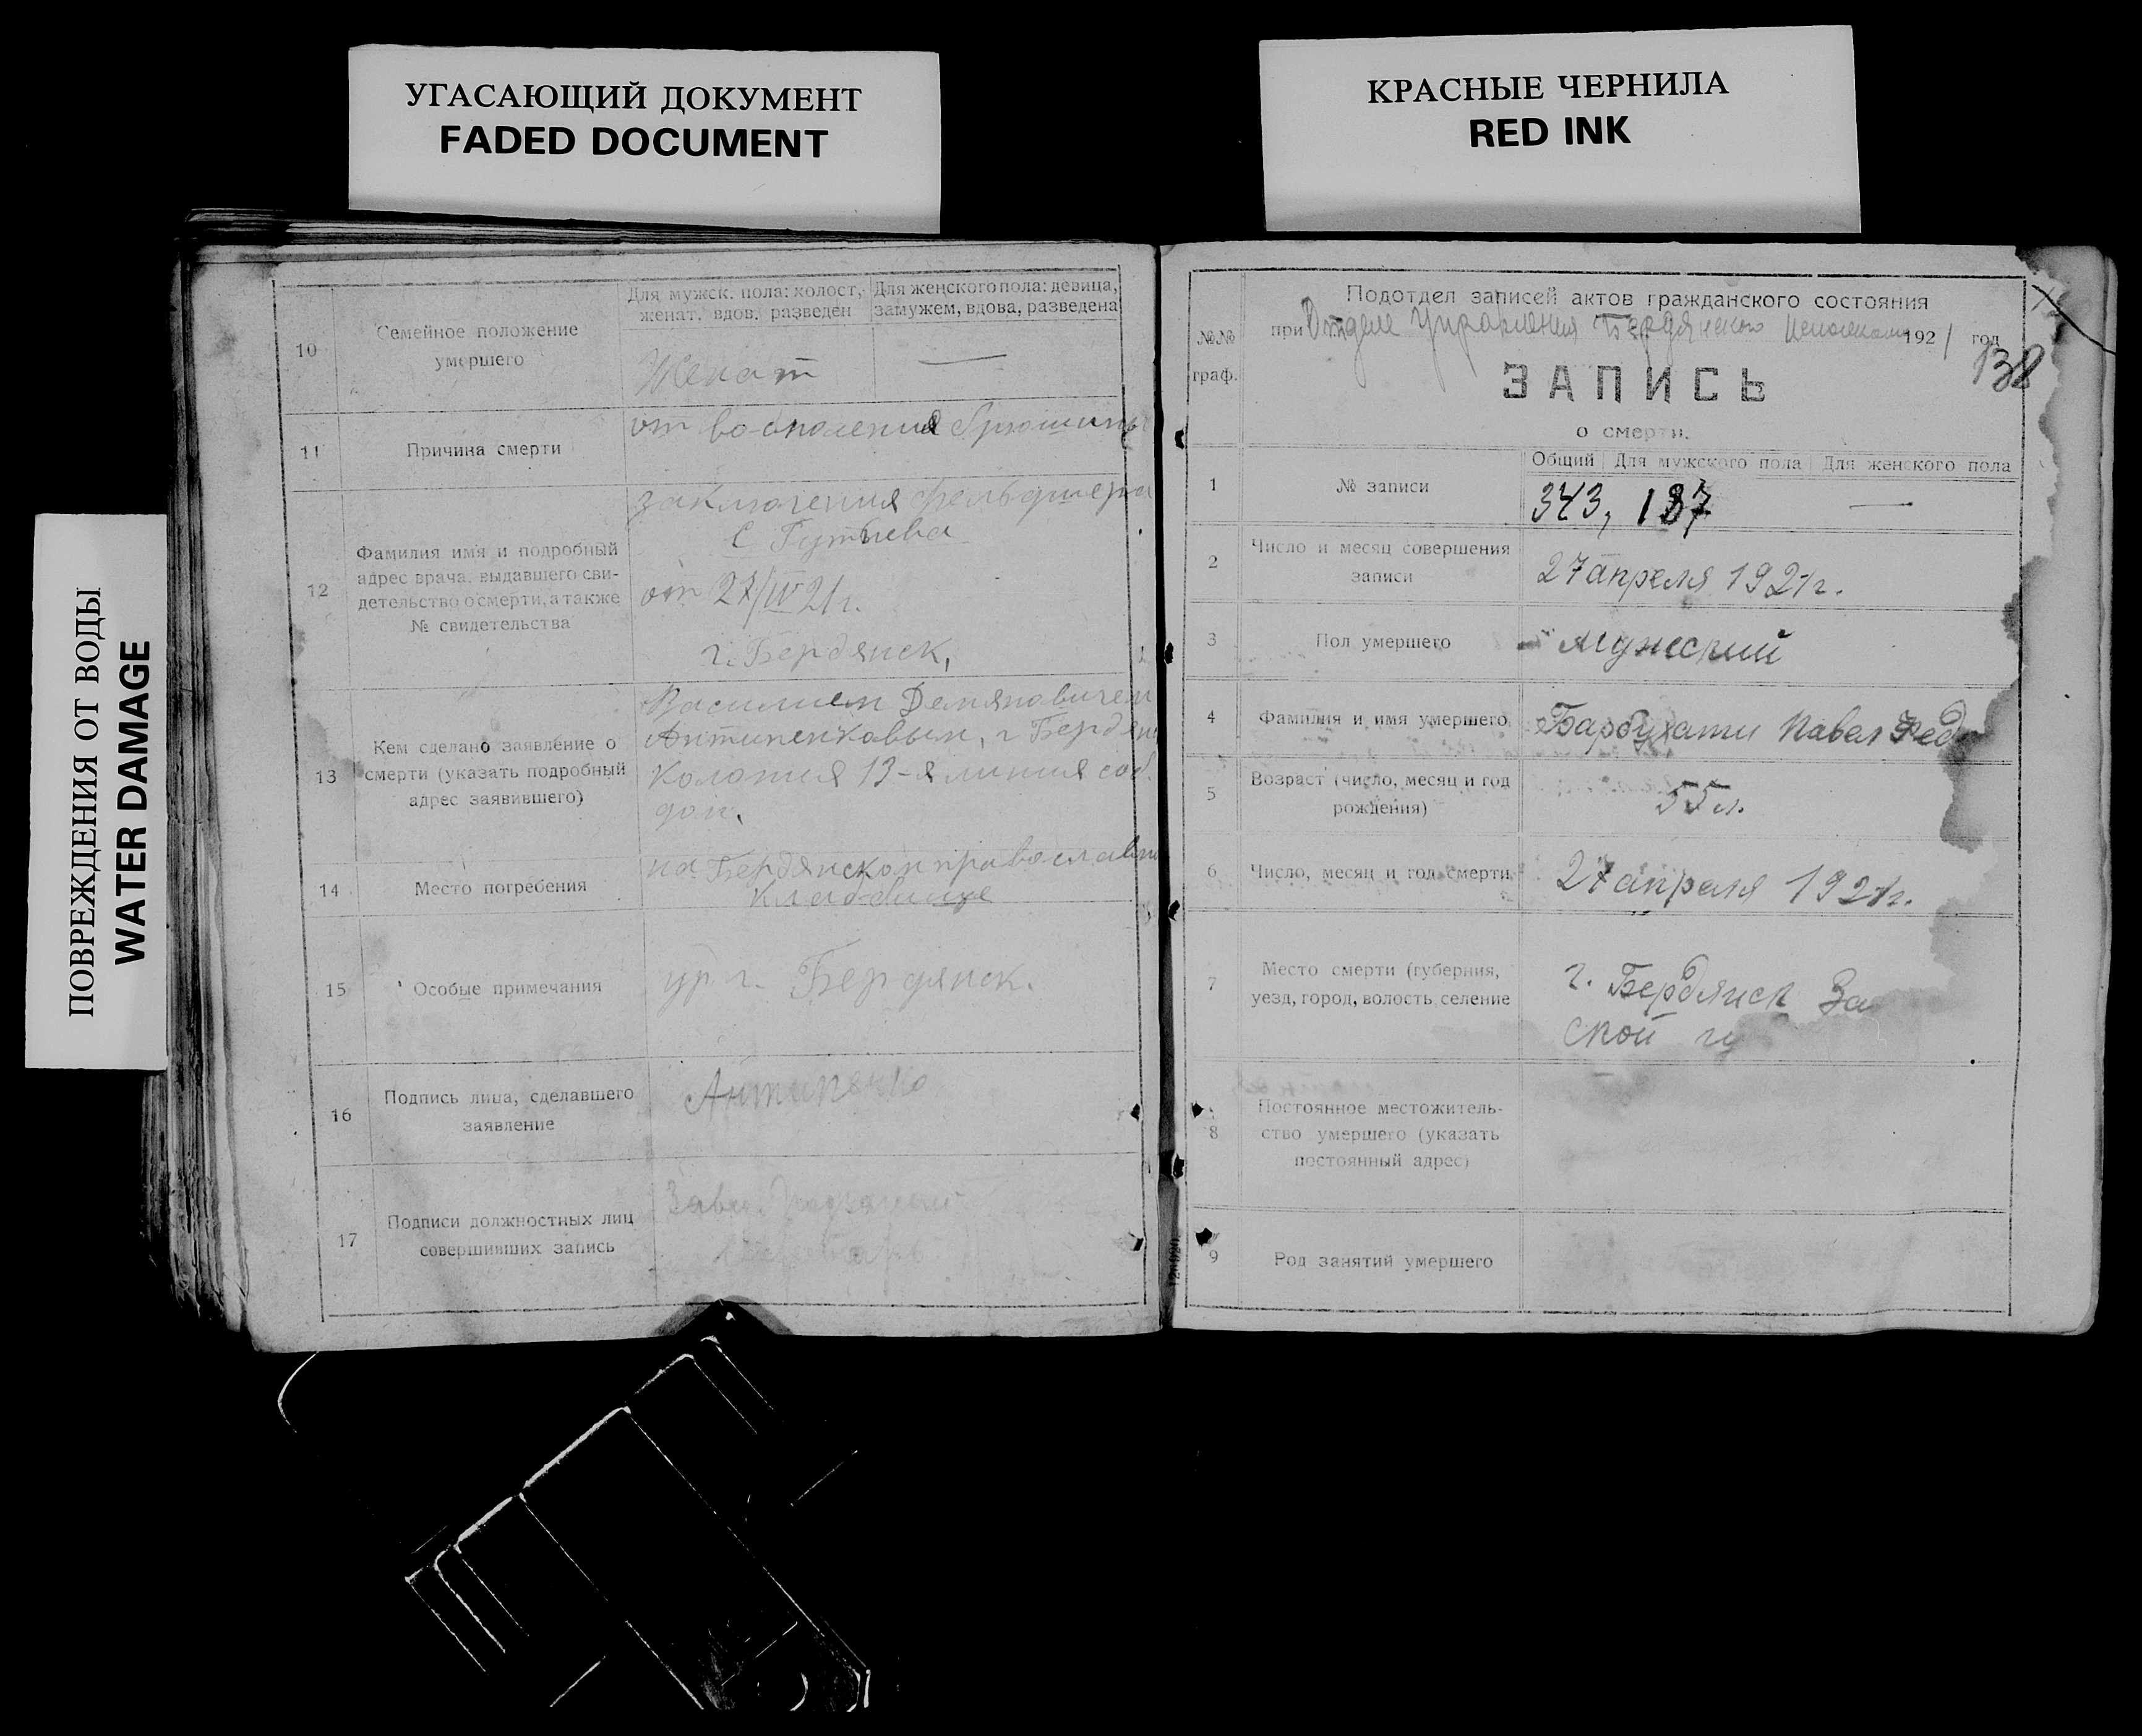 УГАСАЮЩИЙ ДОКУМЕНТ
FADED DOCUMENT
КРАСНЫЕ ЧЕРНИЛА
RED INK
ПОВРЕЖДЕНИЯ ОТ ВОДЫ
WATER DAMAGE
10
Семейное положение
умершего
Для мужск. пола: холост,
женат, вдов, разведен
Для женского пола: девица,
замужем, вдова, разведена
Женат
—
11
Причина смерти
от воспаления брюшины
12
Фамилия имя и подробный
адрес врача, выдавшего сви-
детельство о смерти, а также
№ свидетельства
заключения фельдшера
С
от 27/IV 21г.
г. Бердянск,
13
Кем сделано заявление о
смерти (указать подробный
адрес заявившего)
Василием Демяновичем
Антипенковым, г Бердянс
Колония 13-я линия соб.
дом.
14
Место погребения
на Бердянском православн
кладбище
15
Особые примечания
ур. г. Бердянск.
16
Подпись лица, сделавшего
заявление
Антипенко
17
Подписи должностных лиц
совершивших запись
№№
граф.
Подотдел записей актов гражданского состояния
при Отделе Управления Бердянского Исполкома 1921 год
138
ЗАПИСЬ
о смерти.
1
№ записи
Общий
Для мужского пола
Для женского пола
343, 137 —
2
Число и месяц совершения
записи
27 апреля 1921г.
3
Пол умершего
Мужский
4
Фамилия и имя умершего
Барбухати Павел Фед
5
Возраст (число, месяц и год
рождения)
55 л.
6
Число, месяц и год смерти
27 апреля 1921г.
7
Место смерти (губерния,
уезд, город, волость, селение
г. Бердянск За
ской гу
8
Постоянное местожитель-
ство умершего (указать
постоянный адрес)
9
Род занятий умершего